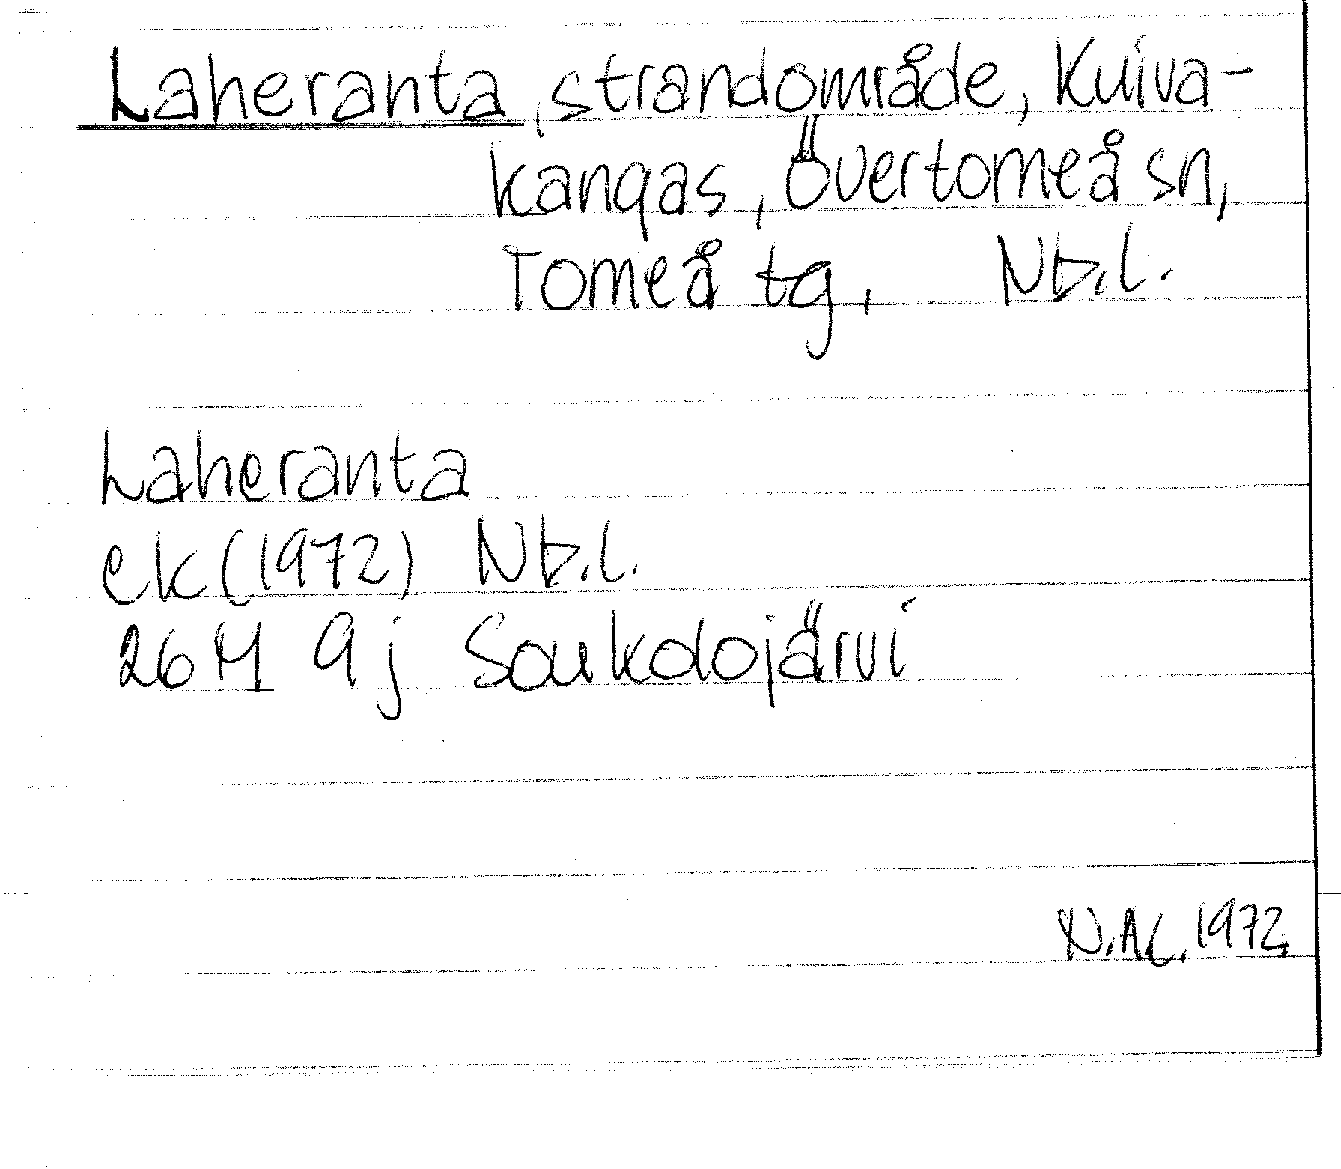 Laheranta, strandområde, Kuiva-
kangas, Övertorneå sn,
Torneå tg, Nb.l.
Laheranta
ek (1972) Nb.l.
26 M 9 j Soukolojärvi
N.AL. 1972